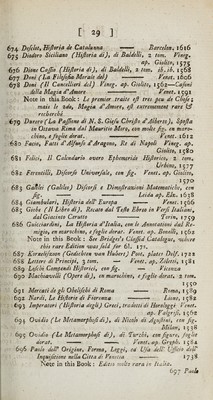 [ 29 ]
674 Desclot, Historia de Catalunna — Barcelon. 1616
675 Diodoro Siciliano (Historia di), di Baldelli, 2 tom. Vineg.
ap. Giolito, 1575
676 Dione Cassio (Historia di), di Baldelli, 2 tom. ib. ib. 1568
677 Doni (La Filosofia Morale del) Venet. 1606
678 Doni (I Cancellieri del) Vineg. ap. Giolito, 1562—Casoni
della Magia d'Amore — Venet. 1591
Note in this Book: Le premier traité est tres peu de Chose;
mais le 2de, Magia d'Amore, est extremement rare &
recherché
679 Donero (La Passione di N. S. Giesu Christo d'Alberto), Sposta
in Ottava Rima dal Mauritio Moro, con molte fig. in maro-
chino, e foglie dorat. — Venet. 1612
680 Facio, Fatti d'Alfonso d'Aragona, Re di Napoli Vineg. ap.
Giolito, 1580
681 Felici, Il Calendario overo Ephemeride Historico, 2 tom.
Urbino, 1577
682 Ferentilli, Discorso Universale, con fig. Vineg. ap. Giolito,
1570
683 Galilei (Galileo) Discorsi e Dimostrazioni Matematiche, con
Leida ap. Elz. 1638
684 Giambulari, Historia dell' Europa — Venet. 1566
685 Giobe (Il Libro di), Recato dal Testo Ebreo in Versi Italiani,
dal Giacinto Ceruti — Torin, 1759
686 Guicciardini, La Historia d'Italia, con le Annotationi del Re-
migio, en marochino, e fogl. dorat. Venet. ap. Bonelli, 1562
Note in this Book: See Bridges's Classical Catalogue, where
this rare Edition was sold for 6l. 17s.
687 Kornelitzoon (Gedichten von Hubert) Poot, platen Delf, 1722
688 Lettere di Principi, 3 tom. — Venet. ap. Zileti, 1581
689 Loschi Compendi Historici, con fig. — Vicenza
690 Machiavelli (Opere di), en marochino, e foglie dorat. 2 tom.
1550
691 Mercati de gli Obelischi di Roma — Roma, 1589
692 Nardi, Le Historie di Fiorenza — Lione, 1582
693 Imperatori (Historia degli) Greci, tradotti di Horologgi Venet.
ap. Valgrisi, 1562
694 Ovidio (Le Metamorphosi di), di Nicolo di Agustini, con fig.
Milan, 1538
695 Ovidio (Le Metamorphosi di), di Turchi, con figure, foglie
dorat. — Venet. ap. Gryphi. 1584
696 Paolo dell' Origine, Forma, Leggi, ed Uso dell' Ufficio dell'
Inquisitione nella Citta di Venetia — 1738
Note in this Book: Edito molto raro in Italia.
697 Paolo